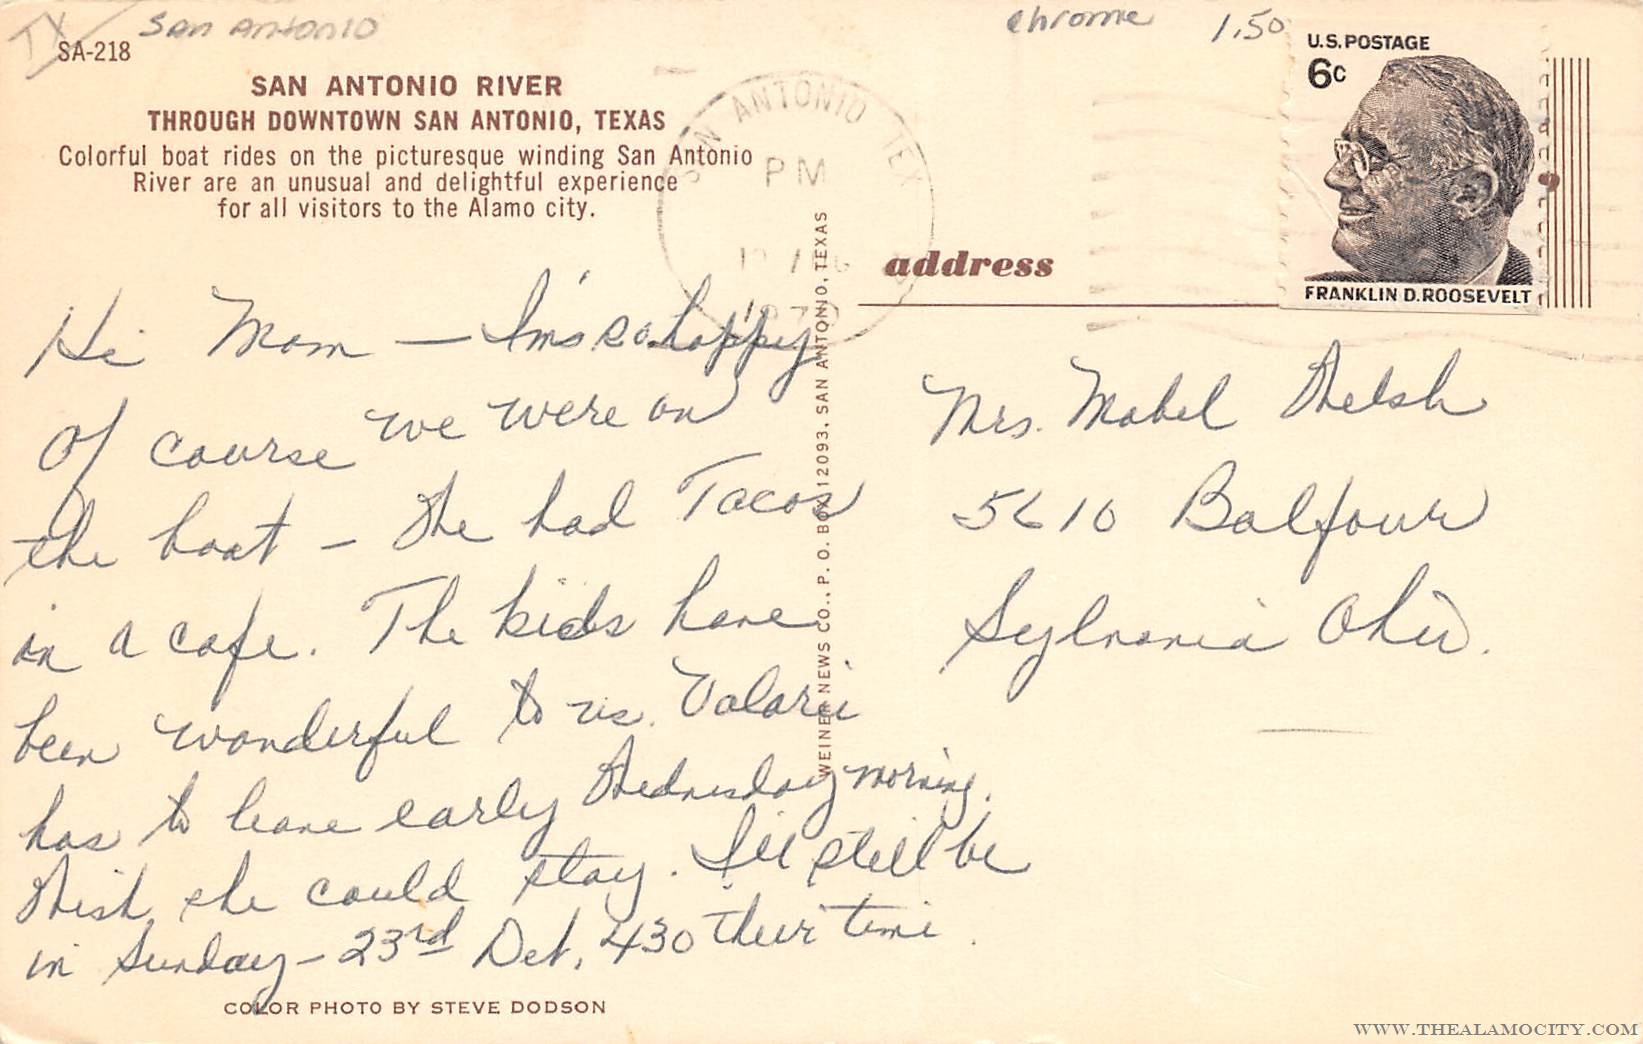 TX San Antonio
chrome 1.50
SA-218
SAN ANTONIO RIVER
THROUGH DOWNTOWN SAN ANTONIO, TEXAS
Colorful boat rides on the picturesque winding San Antonio
River are an unusual and delightful experience
for all visitors to the Alamo city.
SAN ANTONIO TEX
PM
U.S. POSTAGE
6c
FRANKLIN D. ROOSEVELT
address
WEINER NEWS CO., P. O. BOX 12093, SAN ANTONIO, TEXAS
Hi Mom — I'm so happy
Of course we were on
the boat — We had Tacos
in a cafe. The kids have
been wonderful to us. Valarie
has to leave early Wednesday morning.
Wish she could stay. I'll still be
in Sunday — 23rd Det, 430 their time.
Mrs. Mabel Welsh
5610 Balfour
Sylvania Ohio.
COLOR PHOTO BY STEVE DODSON
WWW.THEALAMOCITY.COM